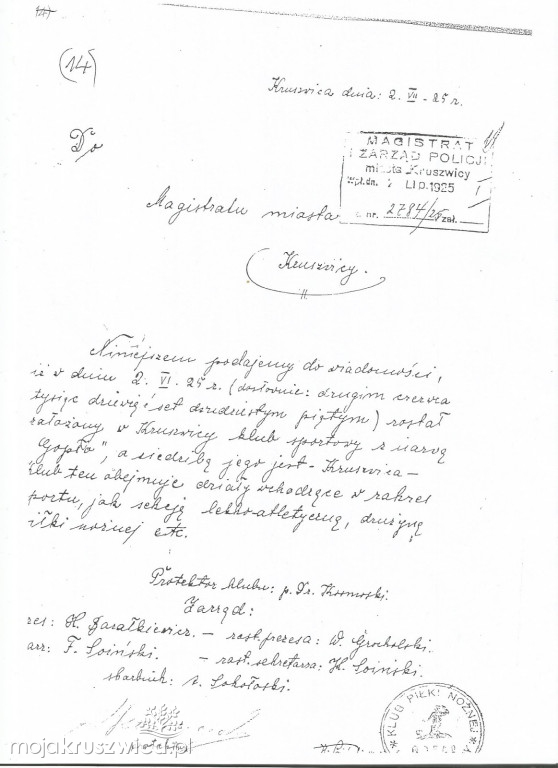 (14)
Kruszwica dnia: 2. VII - 25 r.
Do
MAGISTRAT
I ZARZĄD POLICJI
miasta Kruszwicy
Wpł. dn. LIP. 1925
nr. 2784/25 zał.
Magistratu miasta
Kruszwicy.
Niniejszem podajemy do wiadomości,
iż w dniu 2. VI. 25 r. (dosłownie: drugim czerwca
tysiąc dziewięćset dwudziestym piątym) został
założony w Kruszwicy klub sportowy z nazwą
Gopło", a siedzibą jego jest - Kruszwica -
klub ten obejmuje działy wchodzące w zakres
portu, jak sekcją lekko-atletyczną, drużyną
iłki nożnej etc.
Protektor klubu: p. Dr.
Zarząd:
res: H. - zast. prezesa: W. Grocholski.
arz: F. Soiński. - zast. sekretarza: H. Soiński.
skarbnik: Sokołoski.
KLUB PIŁKI NOŻNEJ
mojakruszwica.pl